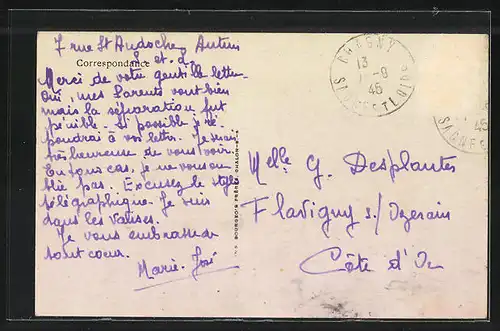 7 rue St Andoche, Autun
S. et L.
Correspondance
Merci de votre gentille lettre.
Oui, mes Parents vont bien
mais la séparation fut
pénible. Si possible je ré-
pondrai à vos lettres. Je serai
très heureuse de vous voir.
En tous cas, je ne vous ou-
blie pas. Excusez le style
télégraphique. Je suis
dans les valises.
Je vous embrasse de
tout coeur.
Marie-José
CHAGNY
13
-9
45
SAONE ET LOIRE
45
Melle G. Desplantes
Flavigny s/ Ozerain
Côte d'Or